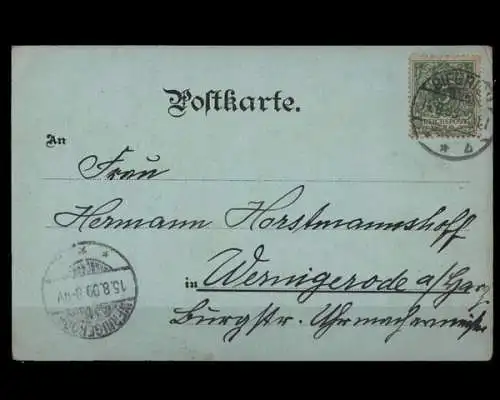 Postkarte.
REICHSPOST
An
Frau
Hermann Horstmannshoff
in Wernigerode a/Harz
Burgstr. Uhrmachermeister
15.8.99 8-9V
WERNIGERODE